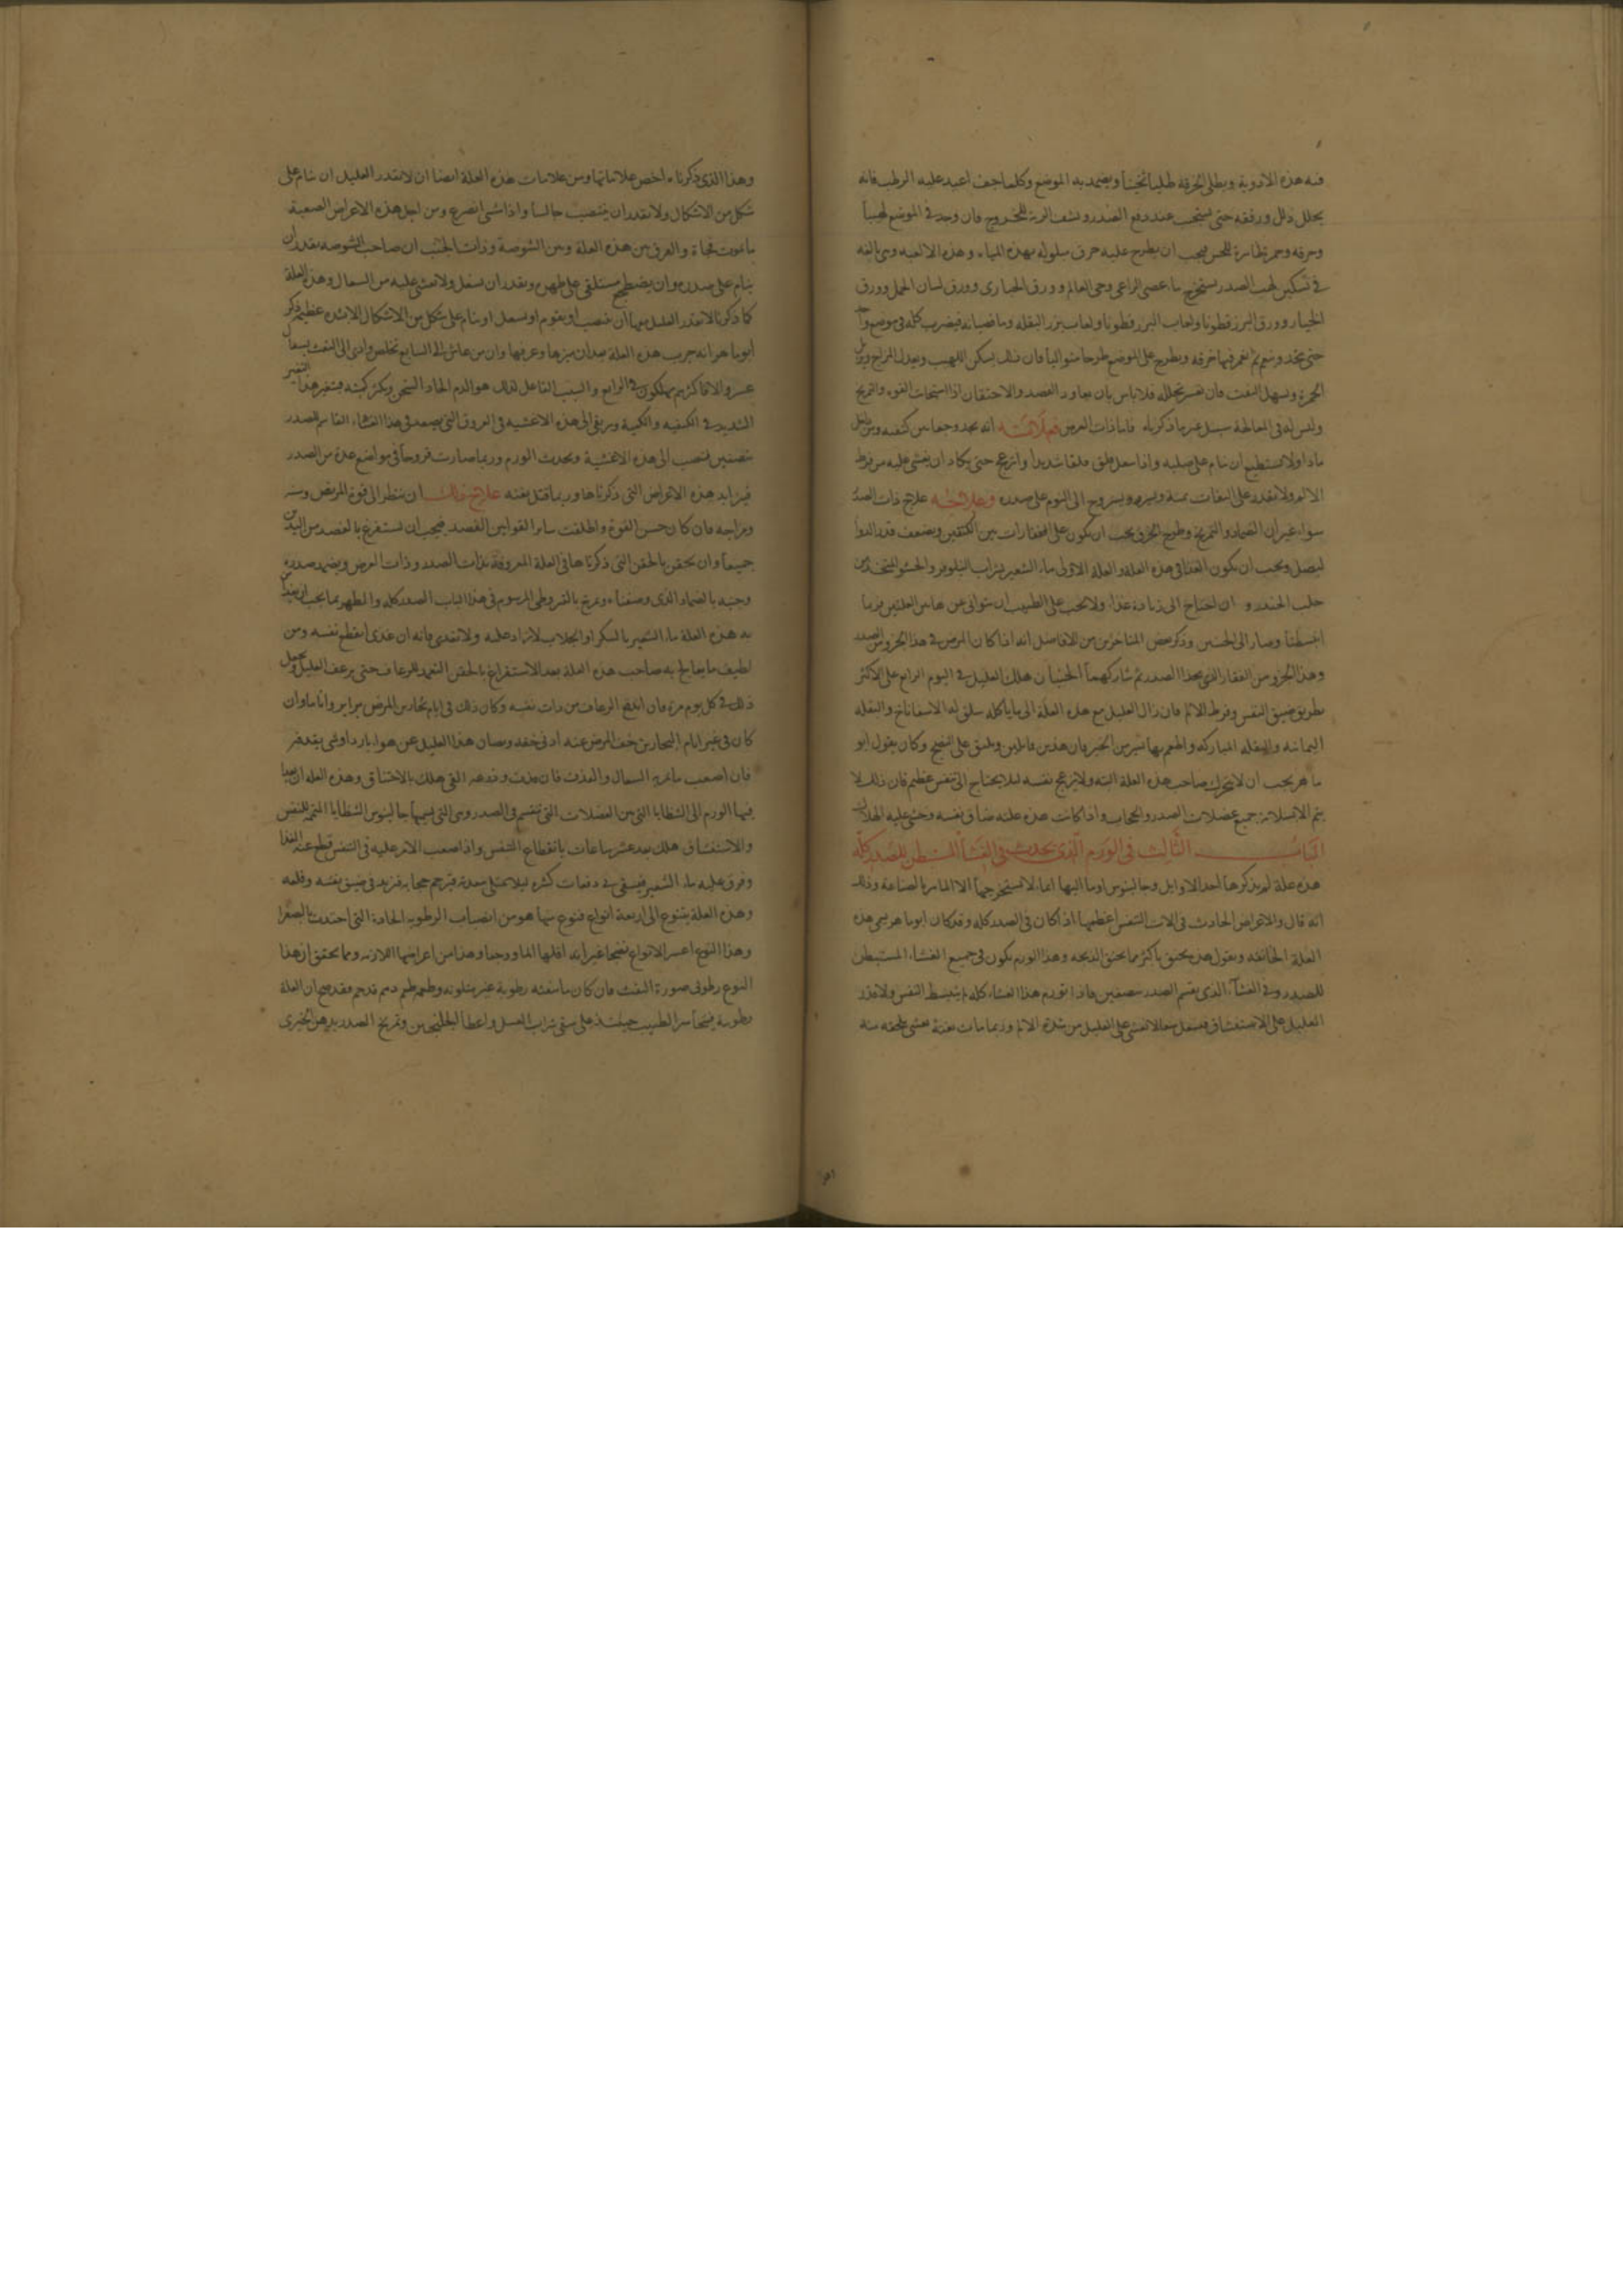 فيه هذه الادوية ويطلى الخرقة طليا ثخينا ويضمد به الموضع وكلما جف اعيد عليه الرطب فانه
يحلل ذلك ويرققه حتى
وحرقة وحمرة ظاهرة للحس فيجب ان يطرح عليه خرق مبلولة بهذه المياه وهذه الالعبة وهي بالغة
في تسكين لهيب الصدر يستخرج ماء عصى الراعي وحي العالم وورق الخبازى وورق لسان الحمل وورق
الخيار وورق البزر قطونا ولعاب البزر قطونا ولعاب بزر البقلة وماء فيضرب كله في موضع واحد
حتى يتحد ثم تغمر فيها خرقة ويطرح على الموضع طرحا متواليا فان ذلك يسكن اللهيب ويعدل المزاج ويزيل
الحمرة ويسهل النفث فان تعسر تحلله فلا باس بان يعاود الفصد والاحتقان اذا القوة والتمريخ
وليس له في المعالجة سبيل غير ما ذكرناه فاما ذات العرض فعلامته انه يجد وجعا بين كتفيه
ولا يستطيع ان ينام على صلبه واذا سعل قلق قلقا شديدا وانزعج حتى يكاد ان يغشى عليه من فرط
الالم ولا يقدر على التفات يمنة ويسرة ويستروح الى النوم على صدره وعلاجه علاج ذات الصدر
سواء غير ان الضماد والتمريخ وطرح الخرق يجب ان يكون على الفقارات بين الكتفين ويضعف قدر الدواء
ليصل ويجب ان يكون الغذا في هذه العلة والعلة الاولى ماء الشعير بشراب النيلوفر والحسو المتخذ من
حلب الحندرو ان احتاج الى زيادة غذا ولا يجب على الطبيب ان يتوانى عن هاتين العلتين فربما
وصار الى الجنبين وذكر بعض المتاخرين من الافاضل انه اذا كان المرض في هذا الجزو من الصدر
وهذا الجزو من الفقار الذي بحذا الصدر ثم شاركهما الجنبان هلك العليل في اليوم الرابع على الاكثر
بطريق ضيق النفس وفرط الالم فان زال العليل مع هذه العلة الى ما ياكله سلق له الاسفاناخ والبقلة
اليمانية والبقلة المباركة واطعم بها يسير من الخبز فان هذين على النضج وكان يقول ابو
ماهر يجب ان لا يتحرك صاحب هذه العلة البتة ولا يزعج نفسه ليلا يحتاج الى تنفس عظيم فان ذلك لا
يتم الا جميع عضلات الصدر والحجاب واذا كانت هذه علته ضاق نفسه وخشي عليه الهلاك
الباب الثالث في الورم الذي يحدث في الغشا المستبطن للصدر كله
هذه علة لم يذكرها احد الاوايل وجالينوس اوما اليها ايماء لا يستخرجها الا الماهر بالصناعة وذلك
انه قال والاعراض الحادث في الات التنفس اعظمها اذا كان في الصدر كله وقد كان ابو ماهر يسمي هذه
العلة الخانقة ويقول هذه يخنق باكثر مما يخنق الذبحة وهذا الورم يكون في جميع الغشاء المستبطن
للصدر وفي الغشاء الذي يقسم الصدر بنصفين فاذا تورم هذا الغشاء كله لم ينبسط النفس ولا يقدر
العليل على الاستنشاق فيسعل سعالا يغشى على العليل من شدة الالم وربما مات بغتة بغشي يلحقه منه
وهذا الذي ذكرناه اخص علاماتها ومن علامات هذه العلة ايضا ان لا يقدر العليل ان ينام على
شكل من الاشكال ولا يقدر ان ينتصب جالسا واذا مشى انصرع ومن اجل هذه الاعراض الصعبة
ما يموت فجاة والفرق بين هذه العلة وبين الشوصة وذات الجنب ان صاحب الشوصة يقدر ان
ينام على صدره وان يضطجع مستلقى على ظهره ويقدر ان يسعل ولا يغشى عليه من السعال وهذه العلة
كما ذكرنا لا يقدر العليل فيها ان ينتصب او يقوم او يسعل او ينام على شكل من الاشكال الا بشدة عظيمة وذكر
ابو ماهر انه جرب هذه العلة بعد ان ميزها وعرفها وان من عاش الى السابع تخلص وادى الى النفث بسعال
عسر والا فاكثرهم يهلكون في الرابع والسبب الفاعل لذلك هو الدم الحاد السخن ويكثر كميته فيتغير هذا التغير
الشديد في الكيفية والكمية ويرتقي الى هذه الاغشية في العروق التي تصعد في هذا الغشاء القاسم للصدر
بنصفين فينصب الى هذه الاغشية ويحدث الورم وربما صارت قروحا في مواضع عدة من الصدر
فيزايد هذه الاعراض التي ذكرناها وربما قتل بغتة علاج ذلك ان ينظر الى قوة المريض وسنه
ومزاجه فان كان حسن القوة واطلقت سائر القوانين الفصد فيجب ان يستفرغ بالفصد من اليدين
جميعا وان يحقن بالحقن التي ذكرناها في العلة المعروفة بذات الصدر وذات العرض ويضمد صدره
وجنبه بالضماد الذي وصفناه ويمرخ بالقيروطي المرسوم في هذا الباب الصدر كله والظهر مما يجب ان يغذا
به هذه العلة ماء الشعير بالسكر او الجلاب لا يزاد عليه ولا يغذى فانه ان غذى انقطع نفسه ومن
لطيف ما يعالج به صاحب هذه العلة بعد الاستفراغ بالحقن التعمد للرعاف حتى يرعف العليل ويجعل
ذلك في كل يوم مرة فان انفتح الرعاف من ذات نفسه وكان ذلك في ايام بحارين المرض برا برءا تاما وان
كان في غير ايام البحارين خف المرض عنه ادنى خفة ويصان هذا العليل عن هواء بارد
فان اصعب ما به السعال والقذف فان قذف هلك بالاختناق وهذه العلة
فيها الورم الى الشظايا التي من العضلات التي تنقسم في الصدر وهي التي يسميها جالينوس الشظايا المتممة للتنفس
والاستنشاق هلك بعد عشر ساعات بانقطاع التنفس واذا صعب الامر عليه في التنفس قطع عنه الغذا
وفرق عليه ماء الشعير فيسقى في دفعات كثيرة ليلا تمتلئ معدته فيزحم حجابه فيزيد في ضيق نفسه وقلقه
وهذه العلة يتنوع الى اربعة انواع فنوع منها هو من انصباب الرطوبة الحادة التي احتدت بالصفرا
وهذا النوع اعسر الانواع نضجا غير انه اقلها الما ووجعا وهذا من اعراضها اللازمة ومما يحقق ان هذا
النوع رطوبي صورة النفث فان كان ما ينفثه رطوبة غير متلونة وطعمه طعم دسم فقد صح ان العلة
رطوبية فيتجاسر الطبيب حينئذ على سقي شراب العسل واعطاء الجلنجبين وتمريخ الصدر بدهن الخيري